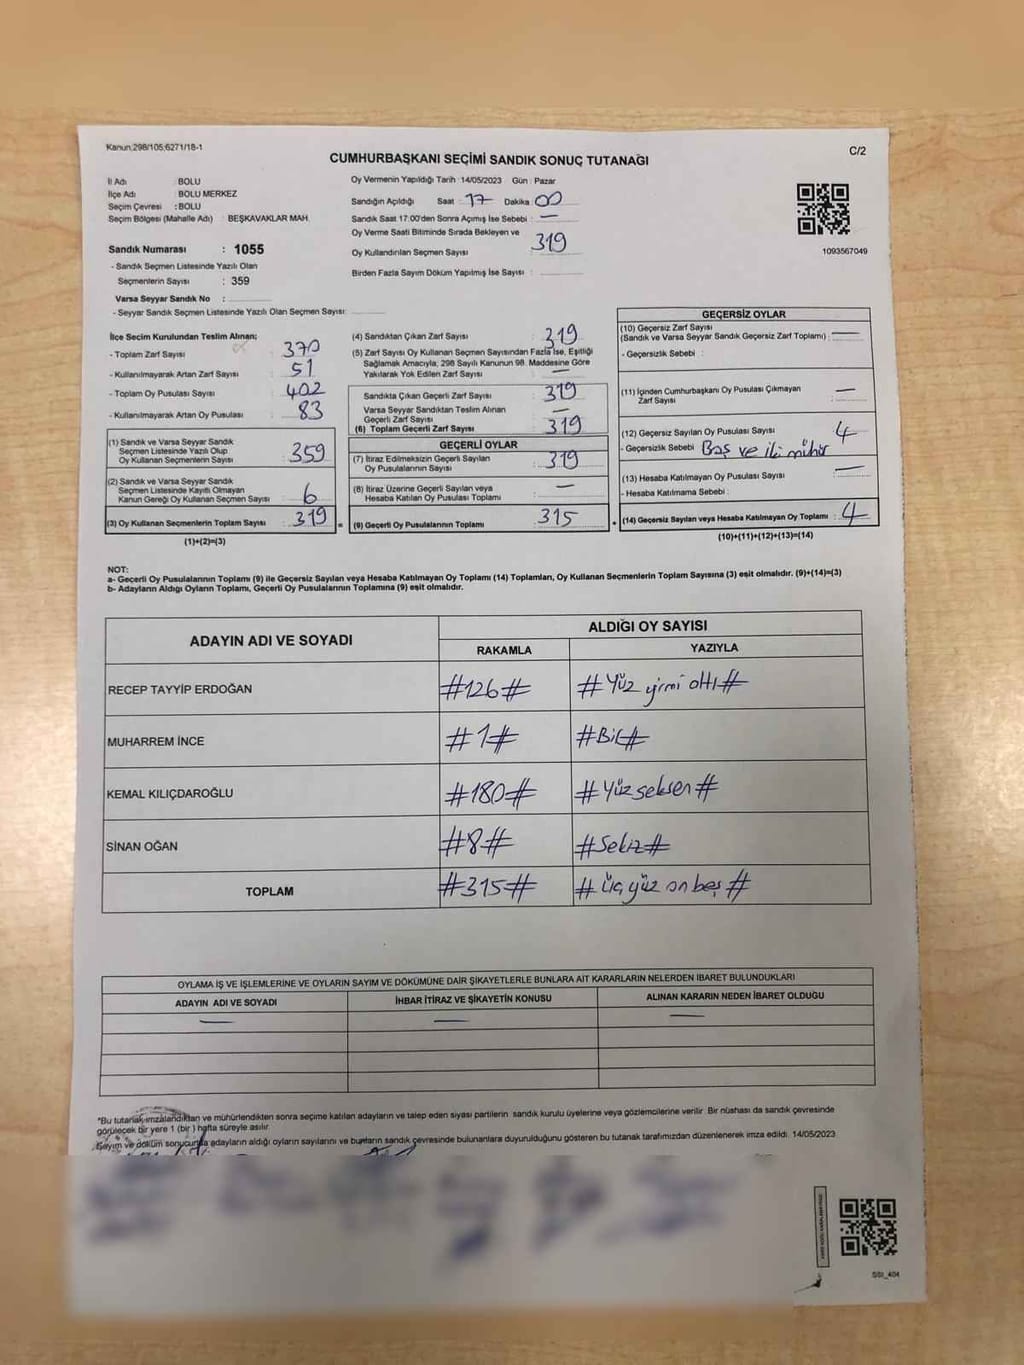 Kanun;298/105;6271/18-1
C/2
CUMHURBAŞKANI SEÇİMİ SANDIK SONUÇ TUTANAĞI
İl Adı : BOLU
İlçe Adı : BOLU MERKEZ
Seçim Çevresi : BOLU
Seçim Bölgesi (Mahalle Adı) : BEŞKAVAKLAR MAH.
Sandık Numarası : 1055
- Sandık Seçmen Listesinde Yazılı Olan
Seçmenlerin Sayısı : 359
Varsa Seyyar Sandık No :
- Seyyar Sandık Seçmen Listesinde Yazılı Olan Seçmen Sayısı:
Oy Vermenin Yapıldığı Tarih :14/05/2023 Gün : Pazar
Sandığın Açıldığı Saat : 17 Dakika : 00
Sandık Saat 17:00'den Sonra Açımış İse Sebebi : —
Oy Verme Saati Bitiminde Sırada Bekleyen ve
Oy Kullandırılan Seçmen Sayısı : 319
Birden Fazla Sayım Döküm Yapılmış İse Sayısı :
1093567049
İlçe Seçim Kurulundan Teslim Alınan;
- Toplam Zarf Sayısı : 370
- Kullanılmayarak Artan Zarf Sayısı : 51
- Toplam Oy Pusulası Sayısı : 402
- Kullanılmayarak Artan Oy Pusulası : 83
(1) Sandık ve Varsa Seyyar Sandık
Seçmen Listesinde Yazılı Olup
Oy Kullanan Seçmenlerin Sayısı : 359
(2) Sandık ve Varsa Seyyar Sandık
Seçmen Listesinde Kayıtlı Olmayan
Kanun Gereği Oy Kullanan Seçmen Sayısı : 6
(3) Oy Kullanan Seçmenlerin Toplam Sayısı : 319
(1)+(2)=(3)
(4) Sandıktan Çıkan Zarf Sayısı : 319
(5) Zarf Sayısı Oy Kullanan Seçmen Sayısından Fazla İse, Eşitliği
Sağlamak Amacıyla; 298 Sayılı Kanunun 98. Maddesine Göre
Yakılarak Yok Edilen Zarf Sayısı : —
Sandıkta Çıkan Geçerli Zarf Sayısı : 319
Varsa Seyyar Sandıktan Teslim Alınan
Geçerli Zarf Sayısı : —
(6) Toplam Geçerli Zarf Sayısı : 319
GEÇERLİ OYLAR
(7) İtiraz Edilmeksizin Geçerli Sayılan
Oy Pusulalarının Sayısı : 319
(8) İtiraz Üzerine Geçerli Sayılan veya
Hesaba Katılan Oy Pusulası Toplamı : —
= (9) Geçerli Oy Pusulalarının Toplamı : 315
GEÇERSİZ OYLAR
(10) Geçersiz Zarf Sayısı
(Sandık ve Varsa Seyyar Sandık Geçersiz Zarf Toplamı) : —
- Geçersizlik Sebebi :
(11) İçinden Cumhurbaşkanı Oy Pusulası Çıkmayan
Zarf Sayısı : —
(12) Geçersiz Sayılan Oy Pusulası Sayısı : 4
- Geçersizlik Sebebi : Boş ve iki mühür
(13) Hesaba Katılmayan Oy Pusulası Sayısı : —
- Hesaba Katılmama Sebebi :
+ (14) Geçersiz Sayılan veya Hesaba Katılmayan Oy Toplamı : 4
(10)+(11)+(12)+(13)=(14)
NOT:
a- Geçerli Oy Pusulalarının Toplamı (9) ile Geçersiz Sayılan veya Hesaba Katılmayan Oy Toplamı (14) Toplamları, Oy Kullanan Seçmenlerin Toplam Sayısına (3) eşit olmalıdır. (9)+(14)=(3)
b- Adayların Aldığı Oyların Toplamı, Geçerli Oy Pusulalarının Toplamına (9) eşit olmalıdır.
ADAYIN ADI VE SOYADI
ALDIĞI OY SAYISI
RAKAMLA YAZIYLA
RECEP TAYYİP ERDOĞAN #126# #Yüz yirmi altı#
MUHARREM İNCE #1# #Bir#
KEMAL KILIÇDAROĞLU #180# #Yüz seksen#
SİNAN OĞAN #8# #Sekiz#
TOPLAM #315# #Üç yüz on beş#
OYLAMA İŞ VE İŞLEMLERİNE VE OYLARIN SAYIM VE DÖKÜMÜNE DAİR ŞİKAYETLERLE BUNLARA AİT KARARLARIN NELERDEN İBARET BULUNDUKLARI
ADAYIN ADI VE SOYADI İHBAR İTİRAZ VE ŞİKAYETİN KONUSU ALINAN KARARIN NEDEN İBARET OLDUĞU
— — —
*Bu tutanak imzalandıktan ve mühürlendikten sonra seçime katılan adayların ve talep eden siyasi partilerin sandık kurulu üyelerine veya gözlemcilerine verilir. Bir nüshası da sandık çevresinde
görülecek bir yere 1 (bir) hafta süreyle asılır.
Sayım ve döküm sonucunda adayların aldığı oyların sayılarını ve bunların sandık çevresinde bulunanlara duyurulduğunu gösteren bu tutanak tarafımızdan düzenlenerek imza edildi. 14/05/2023
SSI_404